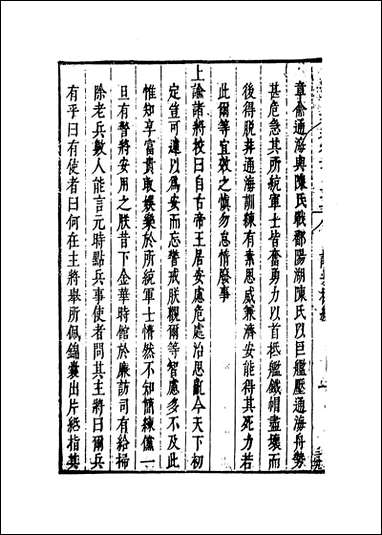 章俞通海與陳氏戰鄱陽湖陳氏以巨艦壓通海舟勢
甚危急其所統軍士皆奮勇力以首抵艦鐵帽盡壞而
後得脱葬通海訓練有素恩威兼濟安能得其死力若
此爾等宜效之慎勿怠惰廢事
上諭諸將校曰自古帝王居安慮危處治思亂今天下初
定豈可遽以爲安而忘警戒朕觀爾等智慮多不及此
惟知享富貴取娛樂於所統軍士懵然不知簡練儻一
旦有警將安用之朕昔下金華時館於廉訪司有給掃
除老兵數人能言元時點兵事使者問其主將曰爾兵
有乎曰有使者曰何在主將舉所佩錦囊出片紙指其